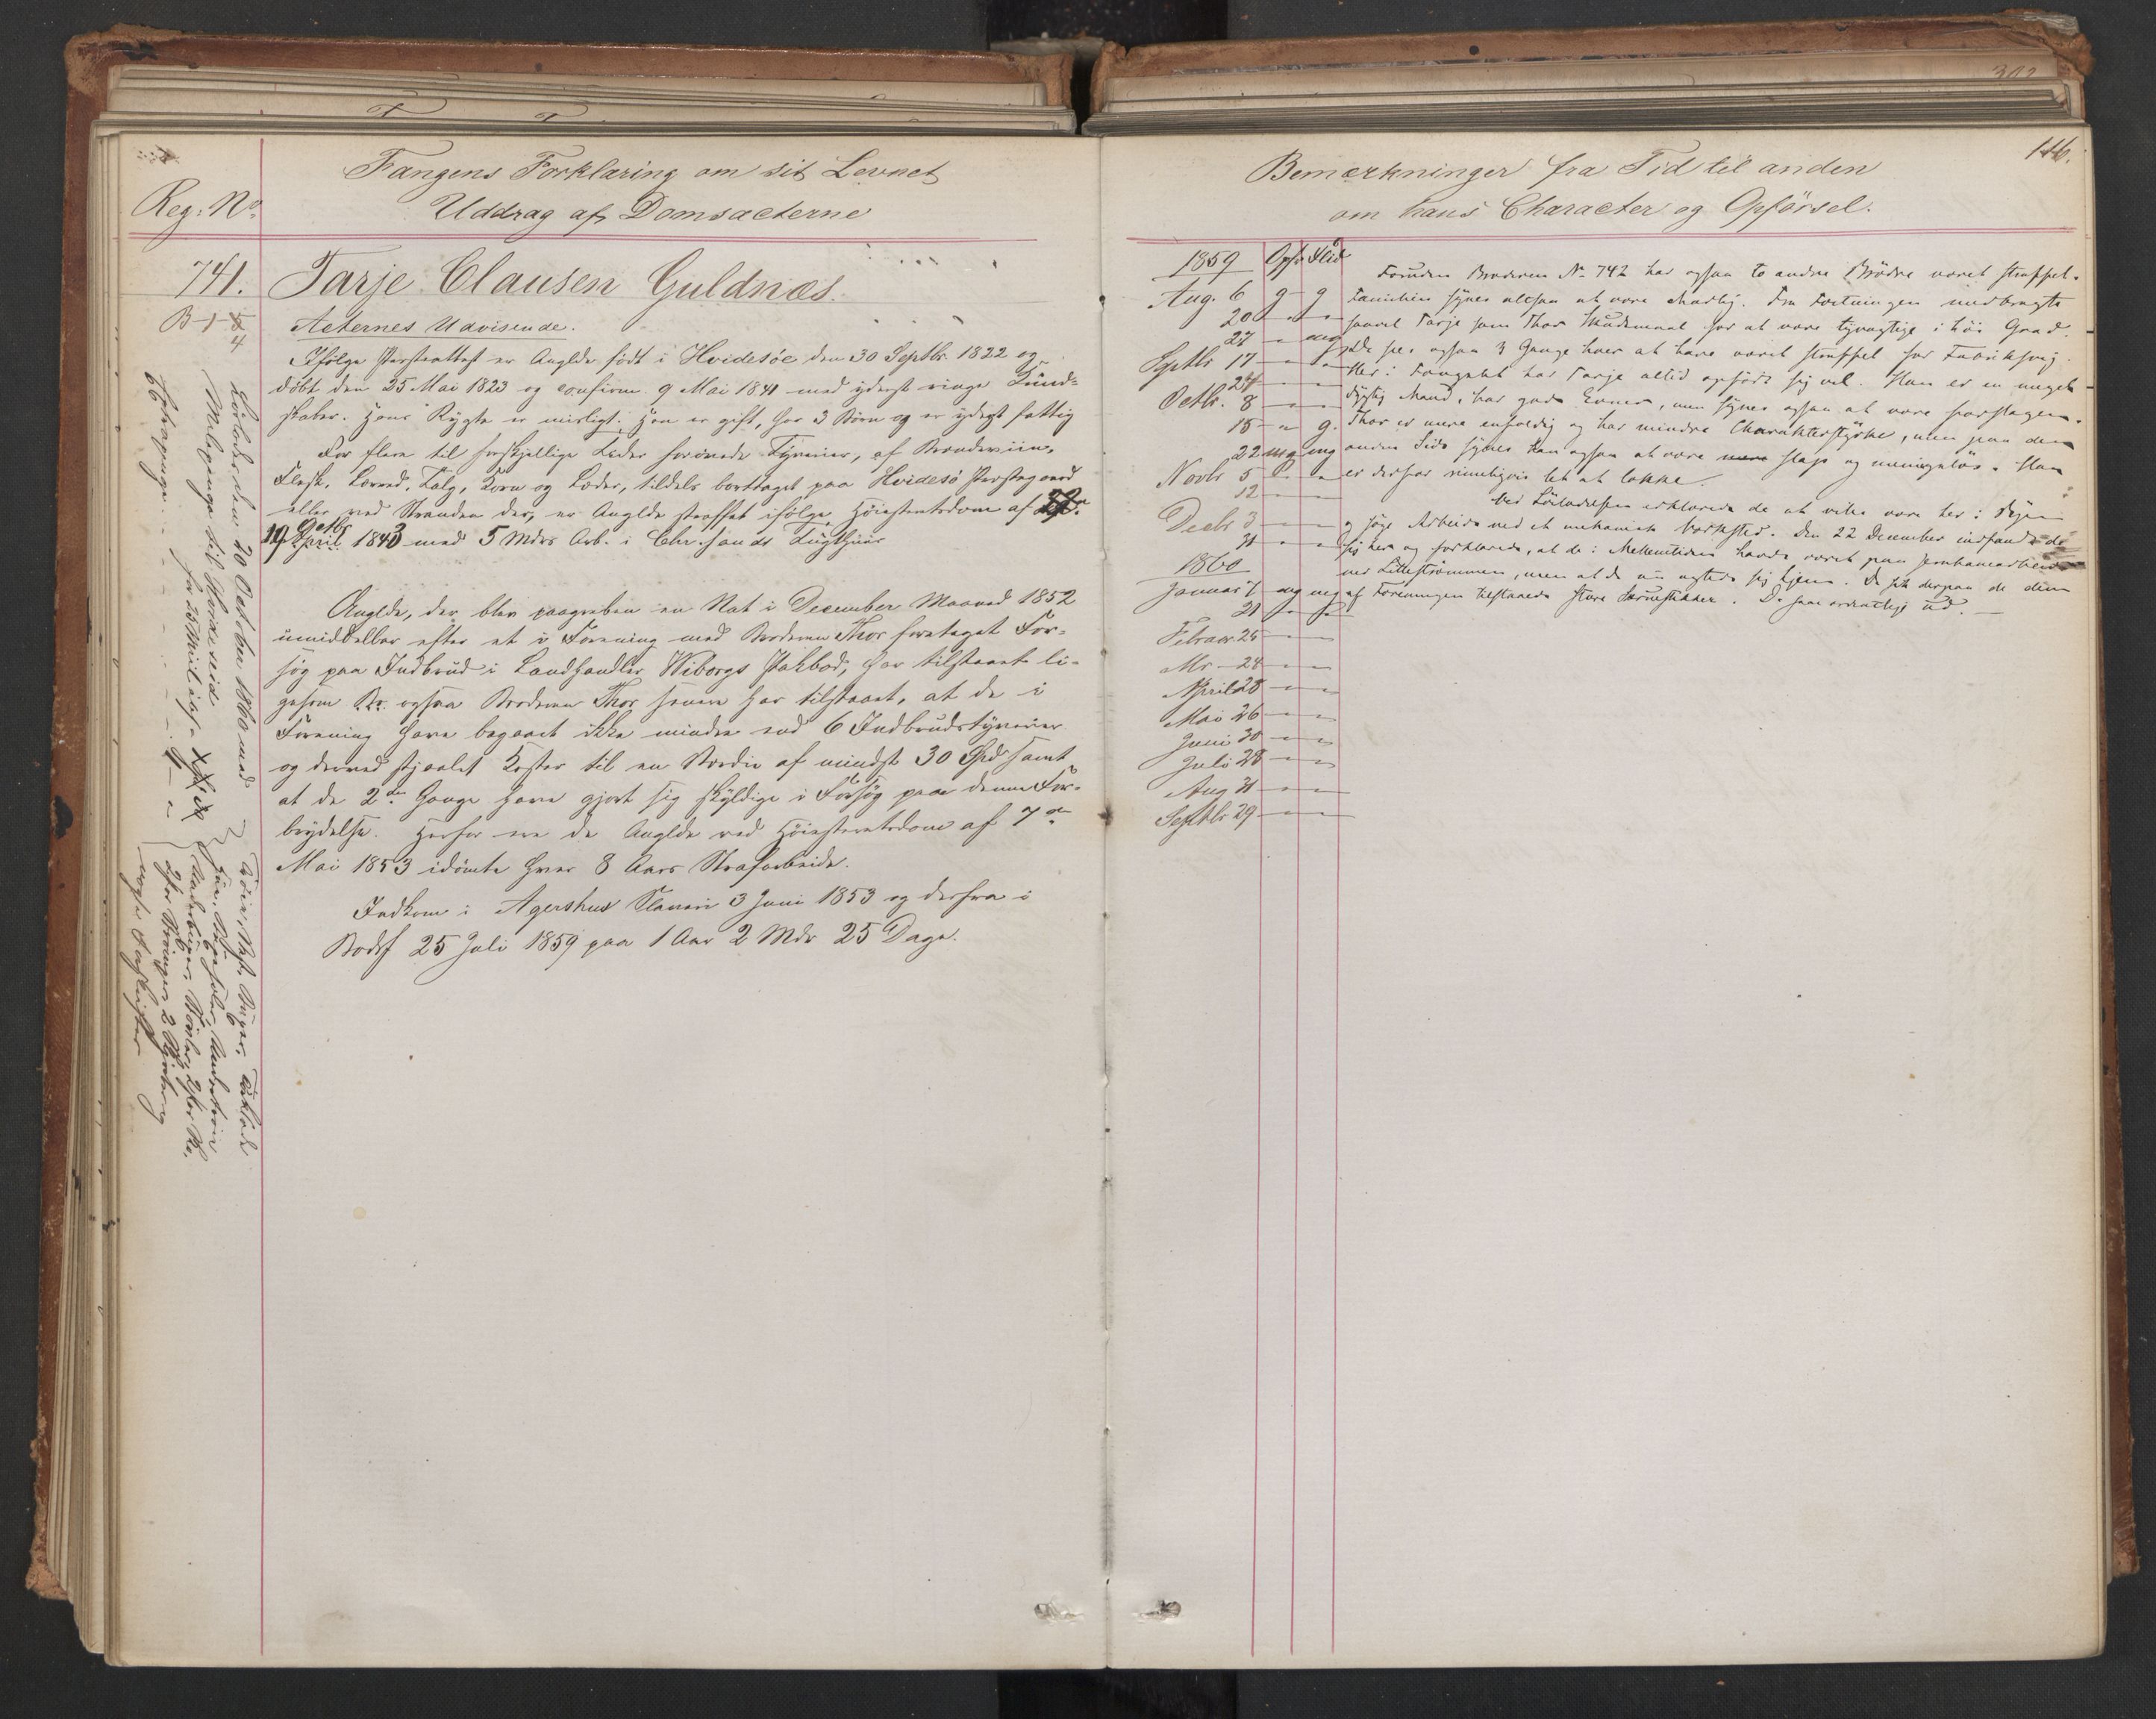 Fangens Forklaring om sit Levnet
Reg: No
Uddrag af Domsacterne
741.
Tarje Clausen Guldnæs.
B-1-5
4
Acternes Udvisende.
Ifølge Præsteattest er Anglde født i Hvidesöe den 30 Septbr. 1822 og
døbt den 25 Mai 1823 og confirm. 9 Mai 1841 med yderst ringe Kund-
skaber. Hans Rygte er misligt. Han er gift, har 3 Børn og er yderst fattig
For flere til forskjellige Tider forøvede Tyverier, af Brændeviin,
Flesk, Lærred, Talg, Korn og Læder, tildels borttaget paa Hvidesö Præstegaard
eller ved Stranden der, er Anglde straffet ifølge Høiesteretsdom af
19 Octbr 1843 med 5 Mdrs Arb. i Chr.sands Tugthuus
Anglde, der blev paagreben en Nat i December Maaned 1852
umiddelbar efter et i Forening med Broderen Thor foretaget For-
søg paa Indbrud i Landhandler Wiborgs Pakbod, har tilstaaet li-
gesom og ogsaa Broderen Thor senere har tilstaaet, at de i
Forening have begaaet ikke mindre end 6 Indbrudstyverier
og derved stjaalet Koster til en Værdie af mindst 30 Spd samt
at de 2de Gange have gjort sig skyldige i Forsøg paa denne For-
brydelse. Herfor ere de Anglde ved Høiesteretsdom af 7de
Mai 1853 idømte hver 8 Aars Strafarbeide.
Indkom i Agershus Slaveri 3 Juni 1853 og derfra i
Bodsf 25 Juli 1859 paa 1 Aar 2 Mdr 25 Dage.
Løsladt den 20 October 1860 med
Mulepenge til Hvideseid
for 25 Mil
Trøie, Vest, Buxer,
2 Skjorter
146.
Bemærkninger fra Tid til anden
om hans Character og Opførsel.
1859 Opf. Flid
Aug. 6 g g
20 " "
27 " mg
Septbr 17 " "
24 " "
Octbr. 8 " "
15 " g.
22 mg mg
Novbr 5 " "
12 " "
Decbr 3 " "
31 " "
1860
Januar 7 mg mg
21 " "
Februar 25 " "
Mr. 24 " "
April 28 " "
Mai 26 " "
Juni 30 " "
Juli 28 " "
Aug 31 " "
Septbr 29 " "
Foruden Broderen No 742 har ogsaa to andre Brødre været straffet.
Familien synes altsaa at være daarlig. Fra Fæstningen medbragte
saavel Tarje som Thor Skudsmaal for at være tyvagtige i høi Grad.
De sees ogsaa 3 Gange hver at have været straffet for Fabriksvig.
Her i Fængslet har Tarje altid opført sig vel. Han er en meget
dygtig Mand, har gode Evner, men synes ogsaa at være forslagen.
Thor er mere enfoldig og har mindre Charakterstyrke, men paa den
anden Side synes han ogsaa at være slap og meningsløs. Han
er derfor rimeligvis let at lokke.
Ved Løsladelsen erklærede de at ville være her i Byen
og søge Arbeide ved et mekanisk Værksted. Den 22 December indfandt de
sig her og forklarede, at de i Mellemtiden havde været paa Jernbanearbeide
ved Lillestrømmen, men at de nu agtede sig hjem. De fik derpaa de dem
af Foreningen tilstaaede store . De saae ordentlige ud. —